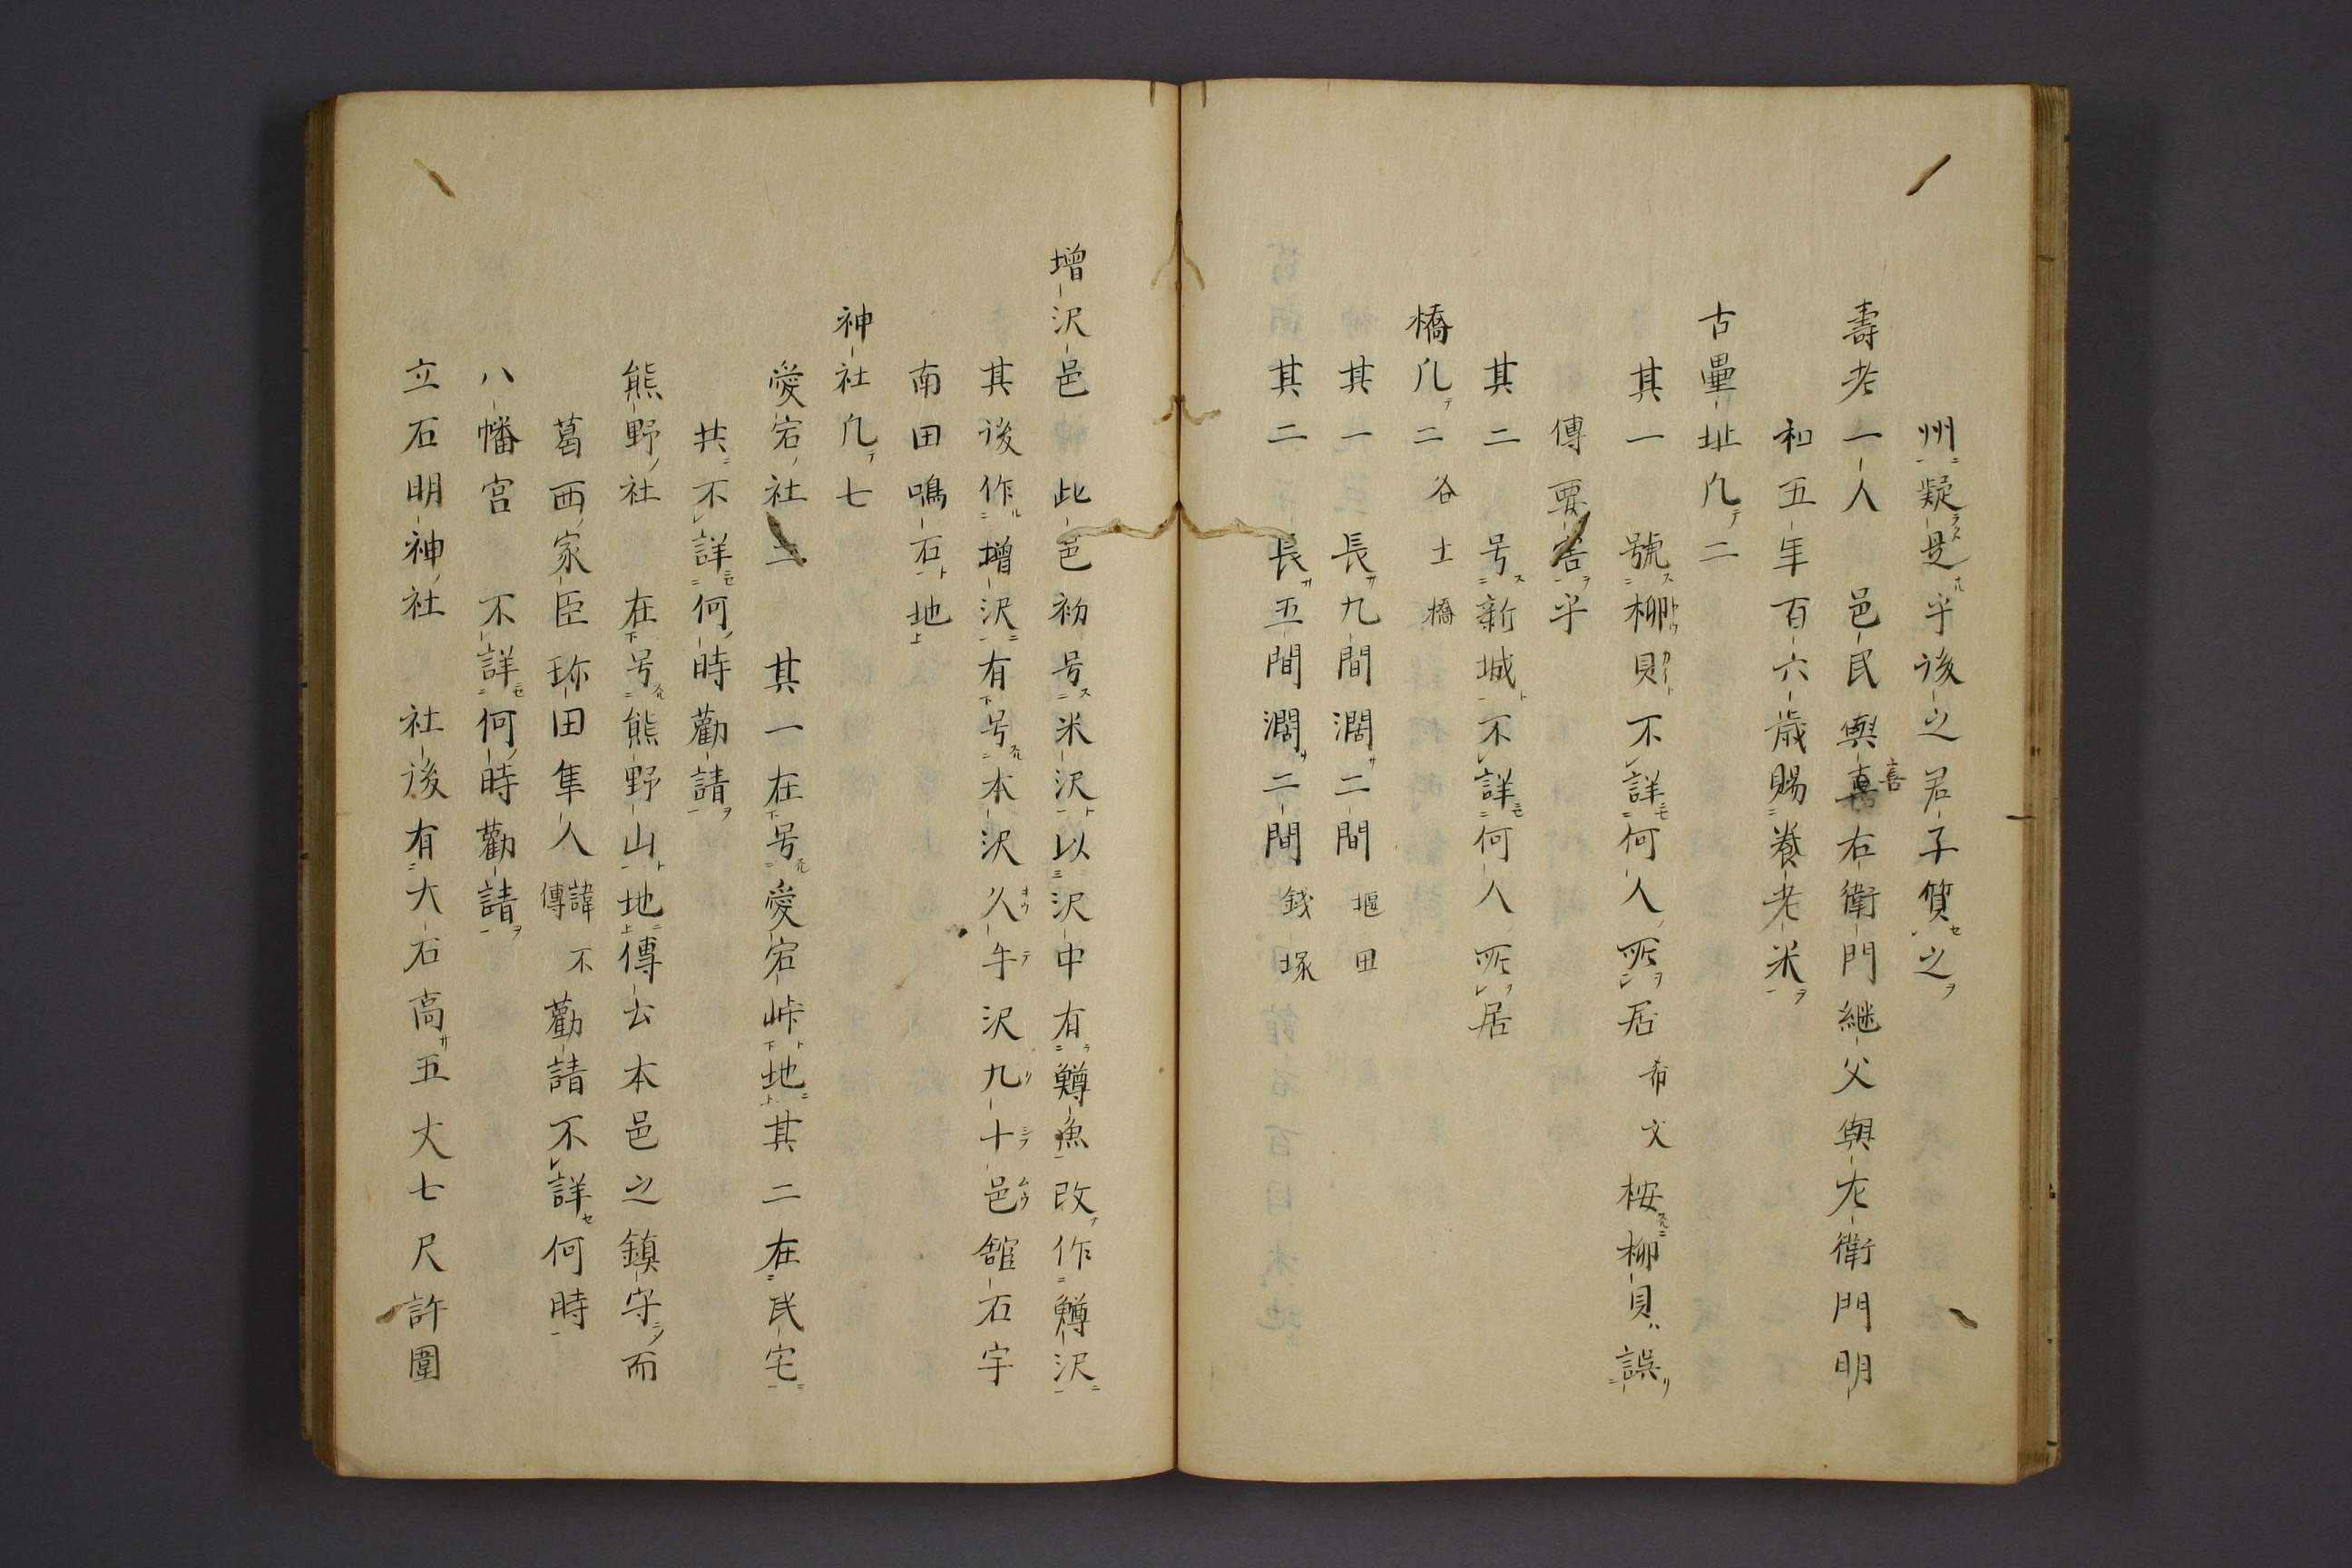 州疑是乎後之君子質之
壽老一人　邑民與喜右衛門継父與左衛門明
和五年百六歳賜養老米
古壘址凡二
其一　號柳貝不詳何人所居　希文桉柳貝誤
傳要害乎
其二　号新城不詳何人所居
橋凡二　谷土橋
其一　長九間濶二間　堰田
其二　長五間濶二間　錢塚
增沢邑　此邑初号米沢以沢中有鱒魚改作鱒沢
其後作增沢有号本沢久午沢九十邑舘石宇
南田鳴石地
神社凡七
愛宕社二　其一在号愛宕峠地其二在民宅
共不詳何時勸請
熊野社　在号熊野山地傳云本邑之鎮守而
葛西家臣珎田隼人諱不傳勸請不詳何時
八幡宮　不詳何時勸請
立石明神社　社後有大石高五丈七尺許圍